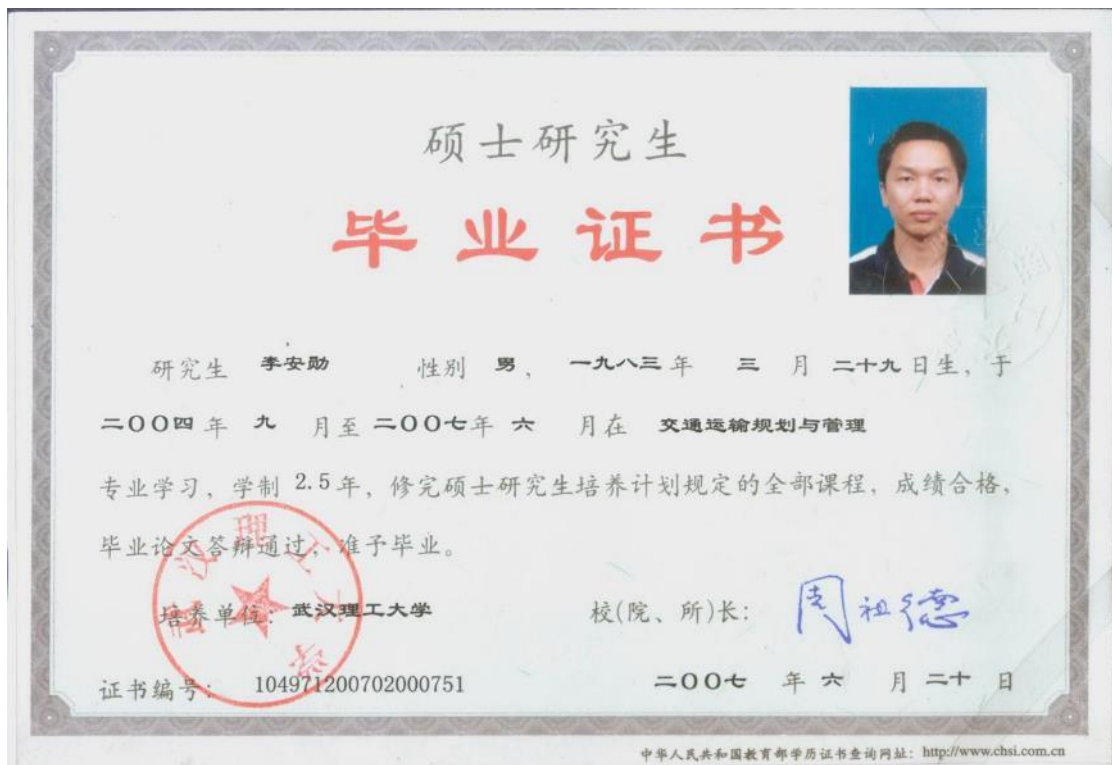 硕士研究生
毕业证书
研究生 李安勋 性别 男、 一九八三年 三 月 二十九日生，于
二〇〇四年 九 月至 二〇〇七年 六 月在 交通运输规划与管理
专业学习，学制 2.5年，修完硕士研究生培养计划规定的全部课程，成绩合格，
毕业论文答辩通过，准予毕业。
武汉理工大学
培养单位：武汉理工大学 校(院、所)长：周祖德
证书编号：104971200702000751 二〇〇七 年 六 月 二十 日
中华人民共和国教育部学历证书查询网址：http://www.chsi.com.cn